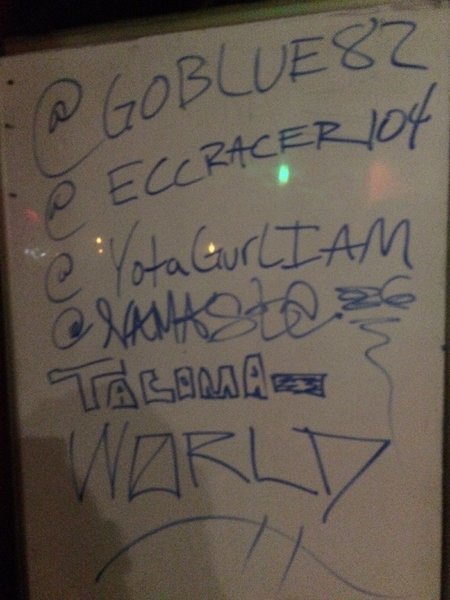 @GOBLUE82
@ECCRACER104
@YotaGurLIAM
@NAMASte
TACOMA
WORLD